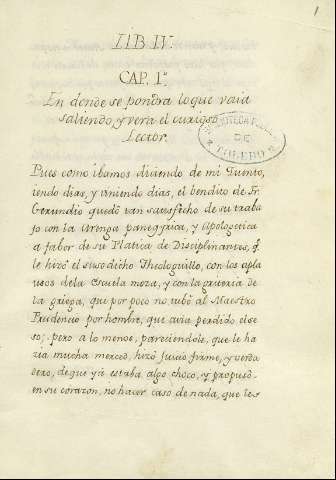 1
LIB. IV.
CAP. 1º.
En donde se pondra loque vaia
saliendo, y vera el curioso
Lector.
BIBLIOTECA
DE
TOLEDO
Pues como ibamos diciendo de mi Quento,
iendo dias, y viniendo dias, el bendito de Fr.
Gerundio quedò tan satisfecho de su traba
jo con la Arenga panegyrica, y Apologetica
a fabor de su Platica de Disciplinantes, q̃.
le hizò el susodicho Theologuillo, con los apla
usos dela Escuela moza, y con la griteria de
la griega, que por poco no tubò al Maestro
Prudencio por hombre, que avia perdido else
so; pero a lo menos, pareciendole, que le ha
zia mucha merced, hizò Juicio firme, y verda
dero, de que yà estaba algo choco, y propusò
en su corazon, no hacer caso de nada, que les